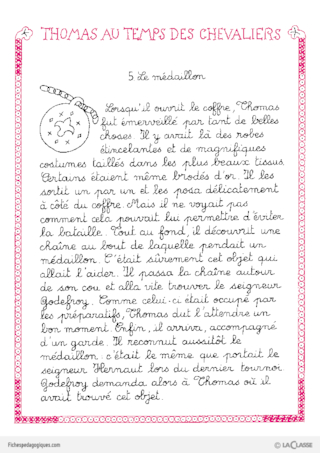 THOMAS AU TEMPS DES CHEVALIERS
5 Le médaillon
Lorsqu'il ouvrit le coffre, Thomas
fut émerveillé par tant de belles
choses. Il y avait là des robes
étincelantes et de magnifiques
costumes taillés dans les plus beaux tissus.
Certains étaient même brodés d'or. Il les
sortit un par un et les posa délicatement
à côté du coffre. Mais il ne voyait pas
comment cela pouvait lui permettre d'éviter
la bataille. Tout au fond, il découvrit une
chaîne au bout de laquelle pendait un
médaillon. C'était sûrement cet objet qui
allait l'aider. Il passa la chaîne autour
de son cou et alla vite trouver le seigneur
Godefroy. Comme celui-ci était occupé par
les préparatifs, Thomas dut l'attendre un
bon moment. Enfin, il arriva, accompagné
d'un garde. Il reconnut aussitôt le
médaillon : c'était le même que portait le
seigneur Hernaut lors du dernier tournoi.
Godefroy demanda alors à Thomas où il
avait trouvé cet objet.
Fichespedagogiques.com
© LA CLASSE